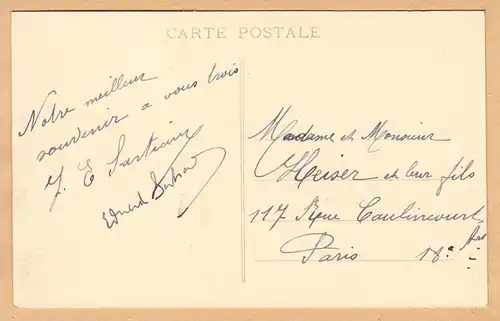 CARTE POSTALE
Notre meilleur
souvenir a vous trois
J. E
Madame et Monsieur
Heiser et leur fils
117 Rue Caulincourt
Paris 18e